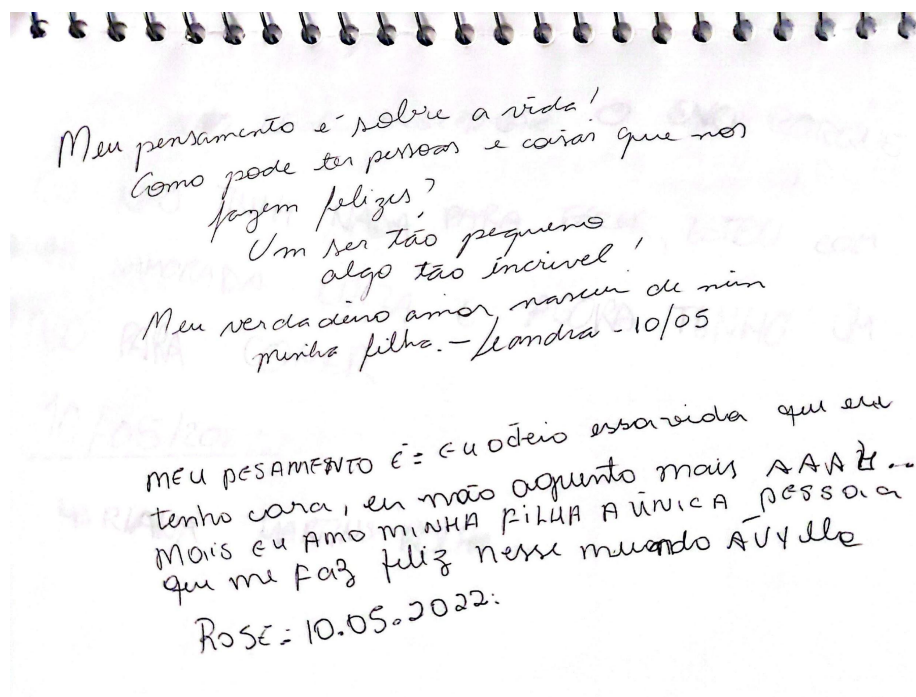 Meu pensamento é sobre a vida!
Como pode ter pessoas e coisas que nos
fazem felizes?
Um ser tão pequeno
algo tão incrivel!
Meu verdadeiro amor, nasceu de mim
minha filha. - Leandra - 10/05
MEU PESAMENTO É = EU odeio essa vida que eu
tenho cara, eu não aguento mais AAAH...
MAis EU AMO MINHA FILHA A ÚNICA pessoa
que me faz feliz nesse muondo AVYlla
ROSE: 10.05.2022:
10/05/202